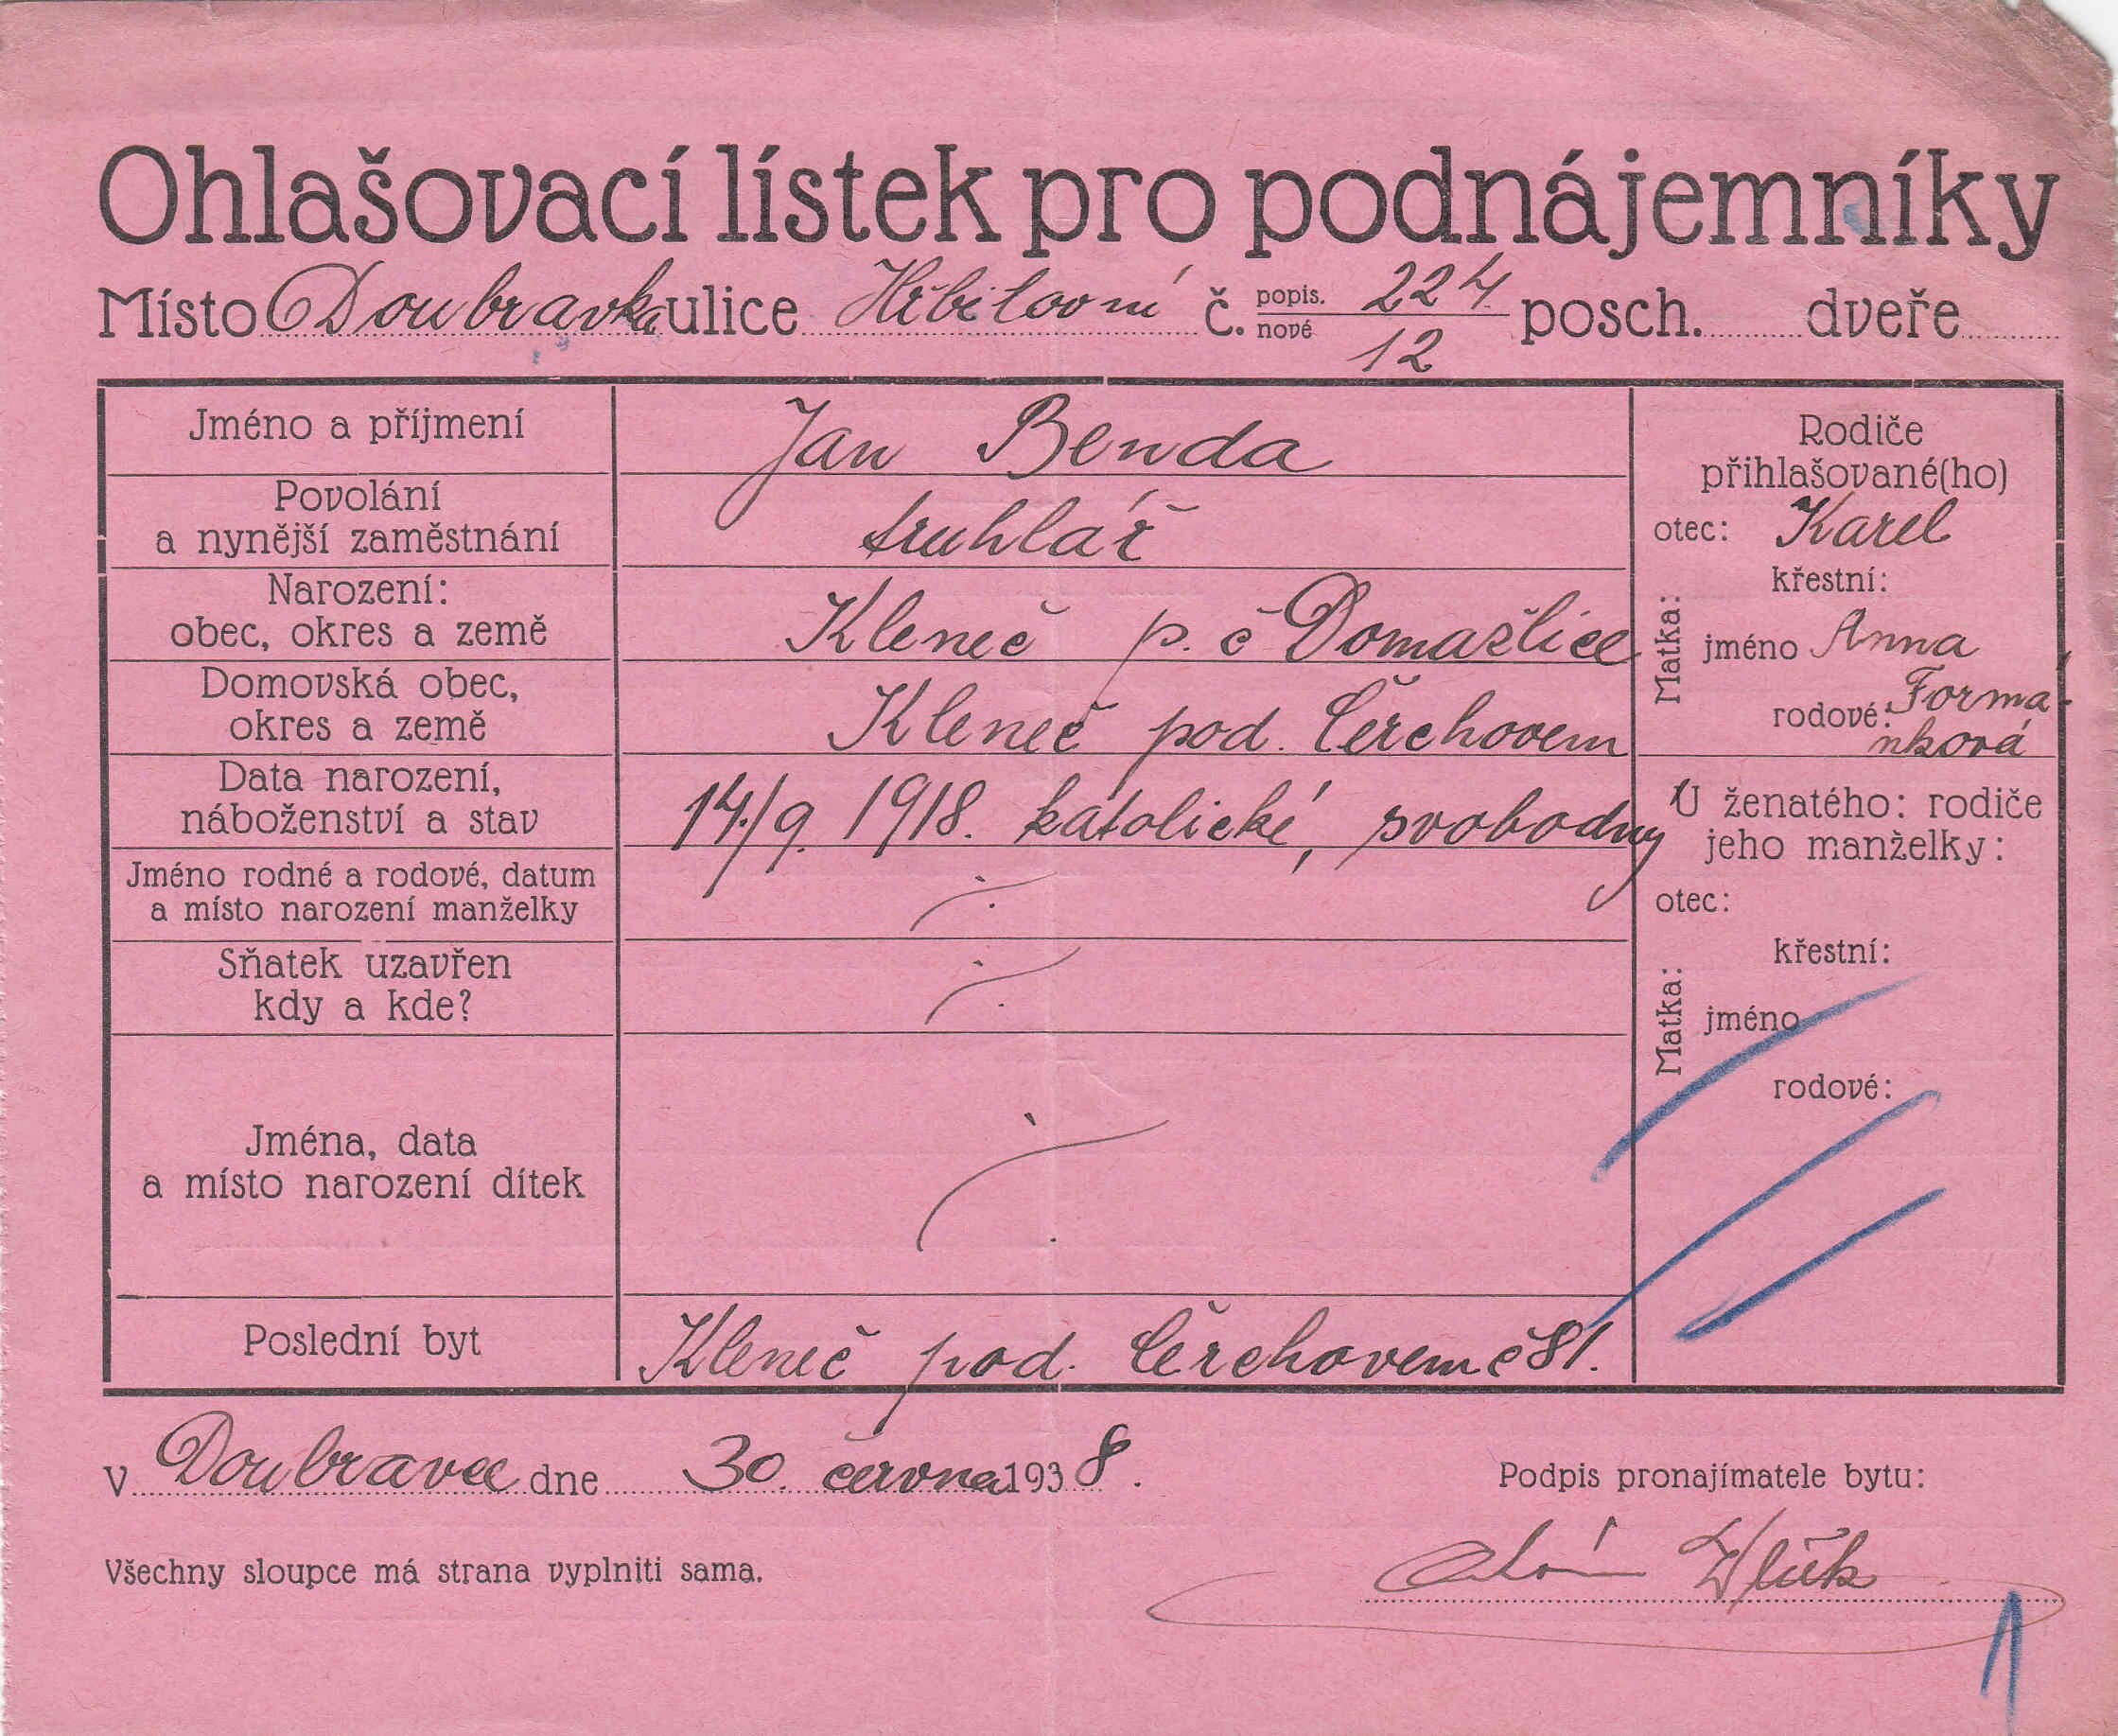 Ohlašovací lístek pro podnájemníky
Místo Doubravka ulice Hřbitovní č. popis. 224 posch. dveře
nové 12
Jméno a příjmení Jan Benda
Povolání
a nynější zaměstnání truhlář
Narození:
obec, okres a země Kleneč p. č Domažlice
Domovská obec,
okres a země Kleneč pod. Čerchovem
Data narození,
náboženství a stav 14./9. 1918. katolické, svobodný
Jméno rodné a rodové, datum
a místo narození manželky
Sňatek uzavřen
kdy a kde?
Jména, data
a místo narození dítek
Poslední byt Kleneč pod. Čerchovem č 81.
Rodiče
přihlašované(ho)
otec: Karel
Matka:
křestní:
jméno Anna
rodové: Forma-
nková
U ženatého: rodiče
jeho manželky:
otec:
Matka:
křestní:
jméno
rodové:
v Doubravce dne 30. června 1938.
Podpis pronajímatele bytu:
Všechny sloupce má strana vyplniti sama.
1